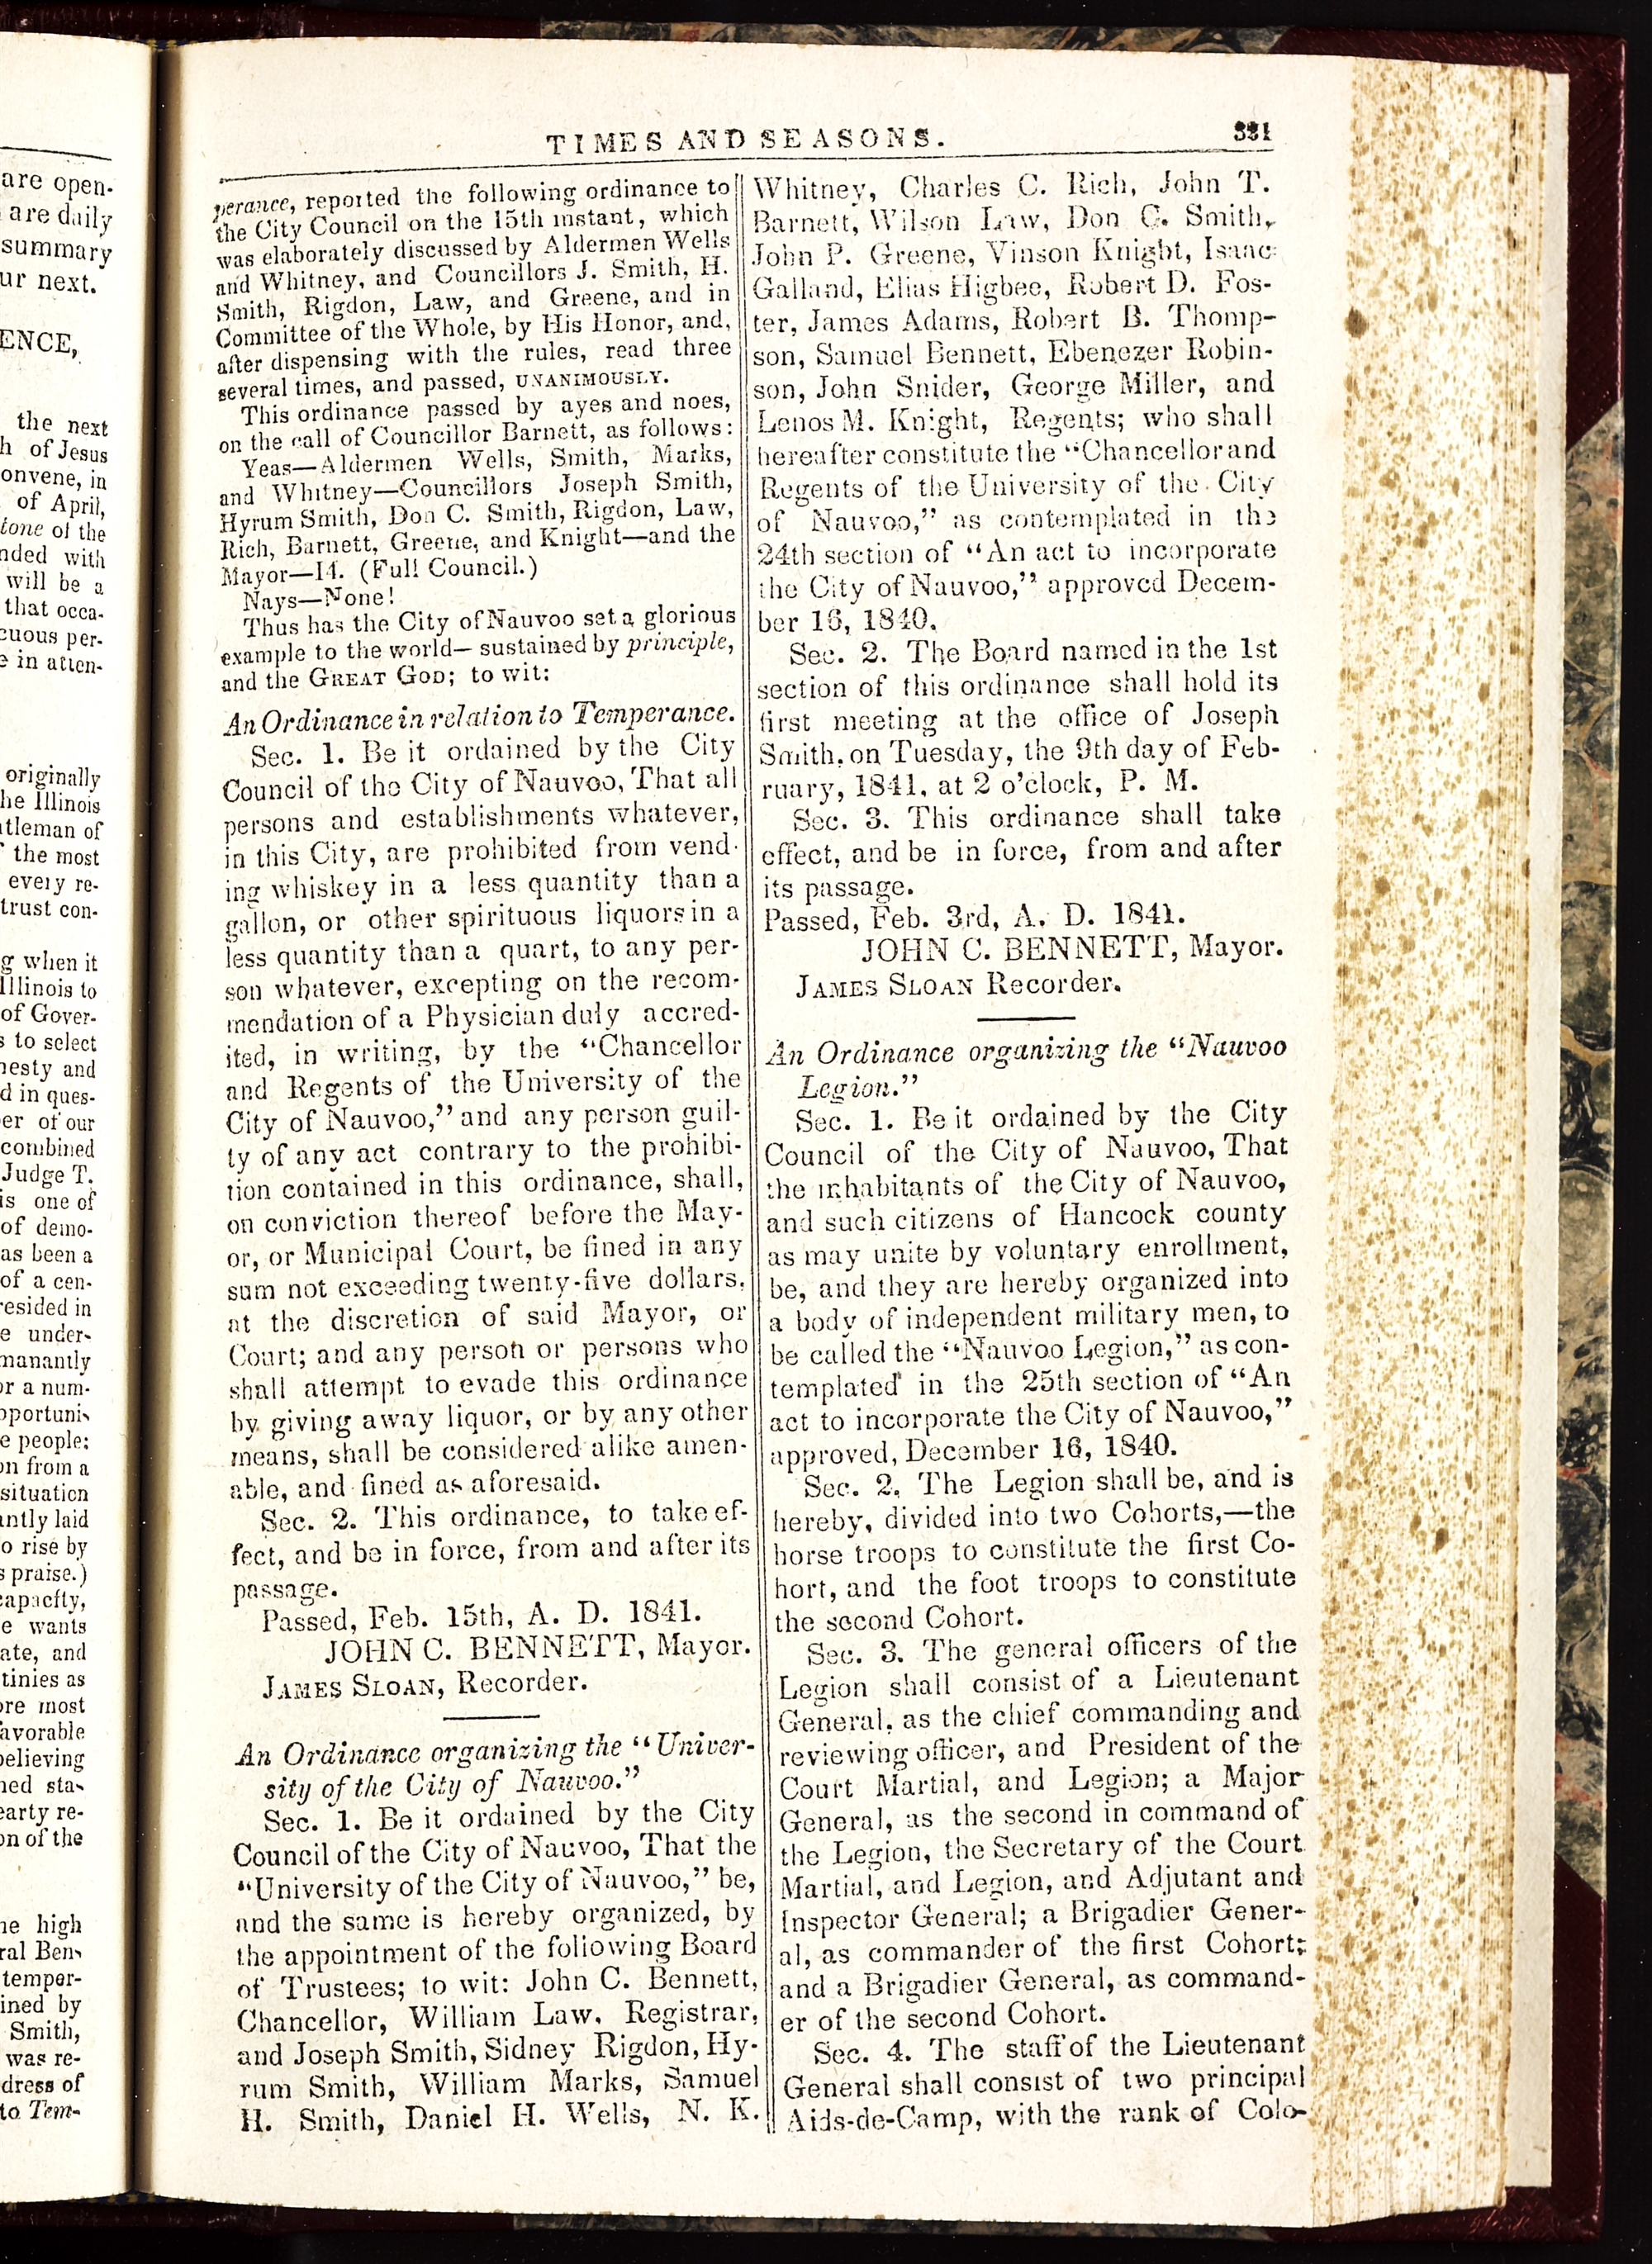 are open-
are daily
summary
ur next.
ENCE,
the next
h of Jesus
onvene, in
of April,
tone of the
nded with
will be a
that occa-
cuous per-
e in atten-
originally
he Illinois
tleman of
the most
every re-
trust con-
g when it
Illinois to
of Gover-
s to select
nesty and
d in ques-
er of our
combined
Judge T.
is one of
of demo-
as been a
of a cen-
resided in
e under-
manantly
or a num-
pportuni-
e people:
on from a
situation
antly laid
o rise by
s praise.)
capacity,
e wants
ate, and
tinies as
ore most
favorable
believing
ned sta-
earty re-
on of the
he high
ral Ben-
temper-
ined by
Smith,
was re-
dress of
to Tem-
TIMES AND SEASONS.
331
perance, reported the following ordinance to
the City Council on the 15th instant, which
was elaborately discussed by Aldermen Wells
and Whitney, and Councillors J. Smith, H.
Smith, Rigdon, Law, and Greene, and in
Committee of the Whole, by His Honor, and,
after dispensing with the rules, read three
several times, and passed, UNANIMOUSLY.
This ordinance passed by ayes and noes,
on the call of Councillor Barnett, as follows:
Yeas—Aldermen Wells, Smith, Marks,
and Whitney—Councillors Joseph Smith,
Hyrum Smith, Don C. Smith, Rigdon, Law,
Rich, Barnett, Greene, and Knight—and the
Mayor—14. (Full Council.)
Nays—None!
Thus has the City of Nauvoo set a glorious
example to the world—sustained by principle,
and the GREAT GOD; to wit:
An Ordinance in relation to Temperance.
Sec. 1. Be it ordained by the City
Council of the City of Nauvoo, That all
persons and establishments whatever,
in this City, are prohibited from vend-
ing whiskey in a less quantity than a
gallon, or other spirituous liquors in a
less quantity than a quart, to any per-
son whatever, excepting on the recom-
mendation of a Physician duly accred-
ited, in writing, by the "Chancellor
and Regents of the University of the
City of Nauvoo," and any person guil-
ty of any act contrary to the prohibi-
tion contained in this ordinance, shall,
on conviction thereof before the May-
or, or Municipal Court, be fined in any
sum not exceeding twenty-five dollars,
at the discretion of said Mayor, or
Court; and any person or persons who
shall attempt to evade this ordinance
by giving away liquor, or by any other
means, shall be considered alike amen-
able, and fined as aforesaid.
Sec. 2. This ordinance, to take ef-
fect, and be in force, from and after its
passage.
Passed, Feb. 15th, A. D. 1841.
JOHN C. BENNETT, Mayor.
JAMES SLOAN, Recorder.
An Ordinance organizing the "Univer-
sity of the City of Nauvoo."
Sec. 1. Be it ordained by the City
Council of the City of Nauvoo, That the
"University of the City of Nauvoo," be,
and the same is hereby organized, by
the appointment of the following Board
of Trustees; to wit: John C. Bennett,
Chancellor, William Law, Registrar,
and Joseph Smith, Sidney Rigdon, Hy-
rum Smith, William Marks, Samuel
H. Smith, Daniel H. Wells, N. K.
Whitney, Charles C. Rich, John T.
Barnett, Wilson Law, Don C. Smith,
John P. Greene, Vinson Knight, Isaac
Galland, Elias Higbee, Robert D. Fos-
ter, James Adams, Robert B. Thomp-
son, Samuel Bennett, Ebenezer Robin-
son, John Snider, George Miller, and
Lenos M. Knight, Regents; who shall
hereafter constitute the "Chancellor and
Regents of the University of the City
of Nauvoo," as contemplated in the
24th section of "An act to incorporate
the City of Nauvoo," approved Decem-
ber 16, 1840.
Sec. 2. The Board named in the 1st
section of this ordinance shall hold its
first meeting at the office of Joseph
Smith, on Tuesday, the 9th day of Feb-
ruary, 1841, at 2 o'clock, P. M.
Sec. 3. This ordinance shall take
effect, and be in force, from and after
its passage.
Passed, Feb. 3rd, A. D. 1841.
JOHN C. BENNETT, Mayor.
JAMES SLOAN Recorder.
An Ordinance organizing the "Nauvoo
Legion."
Sec. 1. Be it ordained by the City
Council of the City of Nauvoo, That
the inhabitants of the City of Nauvoo,
and such citizens of Hancock county
as may unite by voluntary enrollment,
be, and they are hereby organized into
a body of independent military men, to
be called the "Nauvoo Legion," as con-
templated in the 25th section of "An
act to incorporate the City of Nauvoo,"
approved, December 16, 1840.
Sec. 2. The Legion shall be, and is
hereby, divided into two Cohorts,—the
horse troops to constitute the first Co-
hort, and the foot troops to constitute
the second Cohort.
Sec. 3. The general officers of the
Legion shall consist of a Lieutenant
General, as the chief commanding and
reviewing officer, and President of the
Court Martial, and Legion; a Major
General, as the second in command of
the Legion, the Secretary of the Court
Martial, and Legion, and Adjutant and
Inspector General; a Brigadier Gener-
al, as commander of the first Cohort;
and a Brigadier General, as command-
er of the second Cohort.
Sec. 4. The staff of the Lieutenant
General shall consist of two principal
Aids-de-Camp, with the rank of Colo-